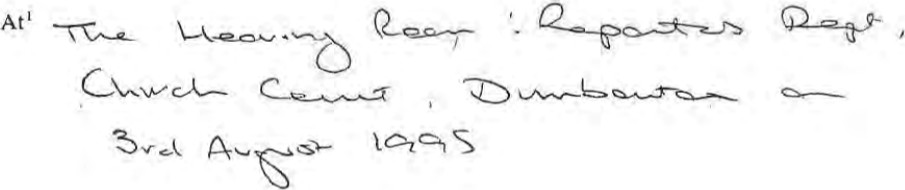 At¹ The Hearing Room : Reporters Dept,
Church Court, Dumbarton on
3rd August 1995